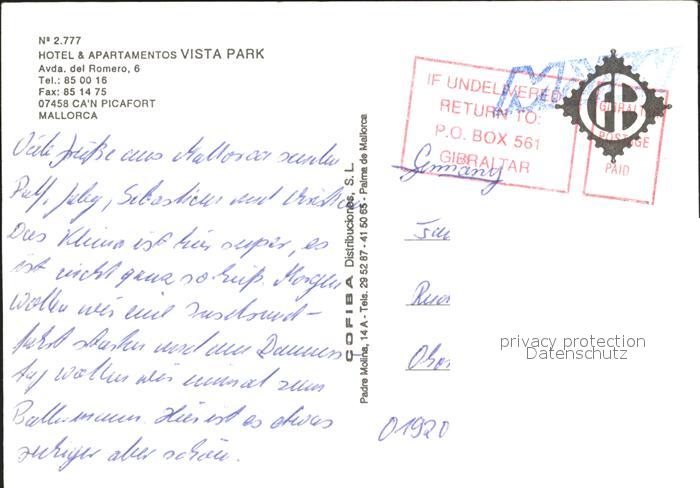 Nº 2.777
HOTEL & APARTAMENTOS VISTA PARK
Avda. del Romero, 6
Tel.: 85 00 16
Fax: 85 14 75
07458 CA'N PICAFORT
MALLORCA
Viele Grüße aus Mallorca senden
Sebastian und
Das Klima ist hier super, es
ist nicht ganz so heiß. Morgen
wollen wir eine Inselrund-
fahrt starten und am Donners
tag wollen wir einmal zum
Ballermann. Hier ist es etwas
ruhiger aber schön.
COFIBA Distribuciones, S.L.
Padre Molina, 14 A - Tels. 29 52 87 - 41 50 65 - Palma de Mallorca
IF UNDELIVERED
RETURN TO:
P.O. BOX 561
GIBRALTAR
GIBRALTAR
POSTAGE
PAID
Germany
01920
privacy protection
Datenschutz